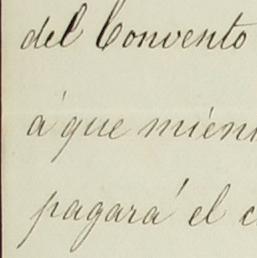 del Convento
á que mién
pagará el c